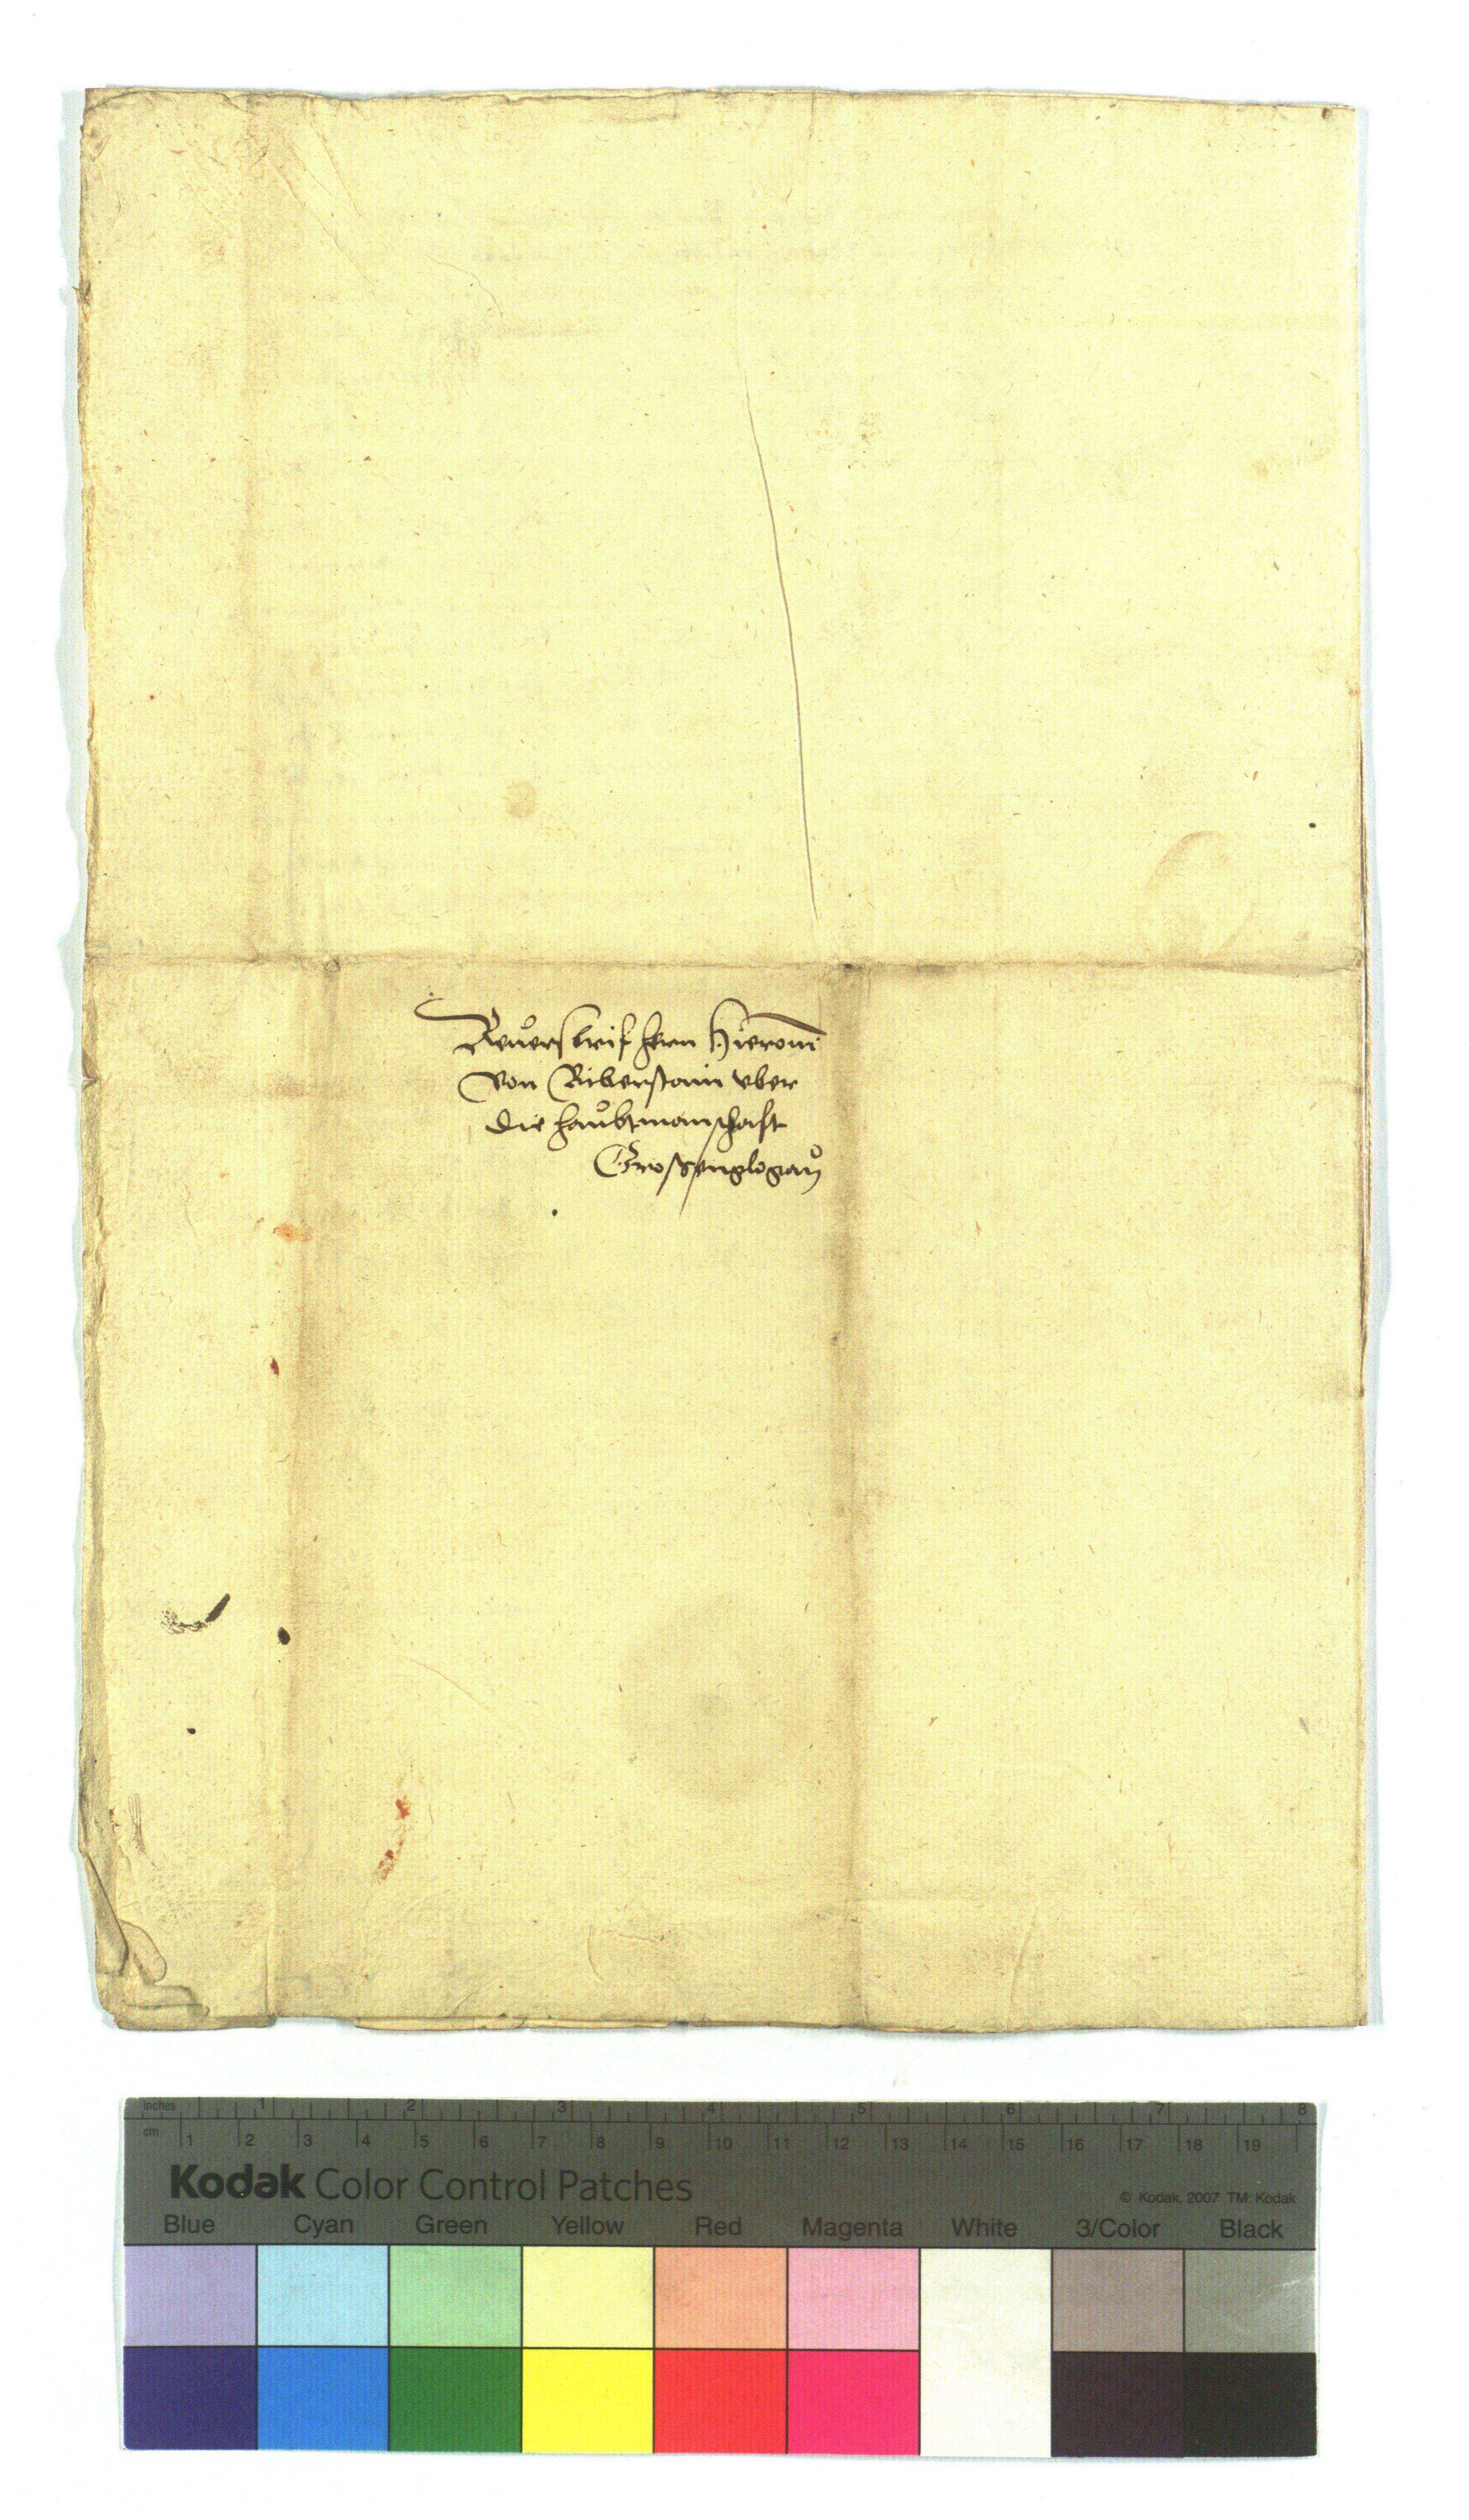 Reuersbrif hern Hieronimi
von Biberstain vber
die haubtmanschaft
Grossenglogau
inches 1 2 3 4 5 6 7 8
cm 1 2 3 4 5 6 7 8 9 10 11 12 13 14 15 16 17 18 19
Kodak Color Control Patches
© Kodak, 2007 TM: Kodak
Blue Cyan Green Yellow Red Magenta White 3/Color Black